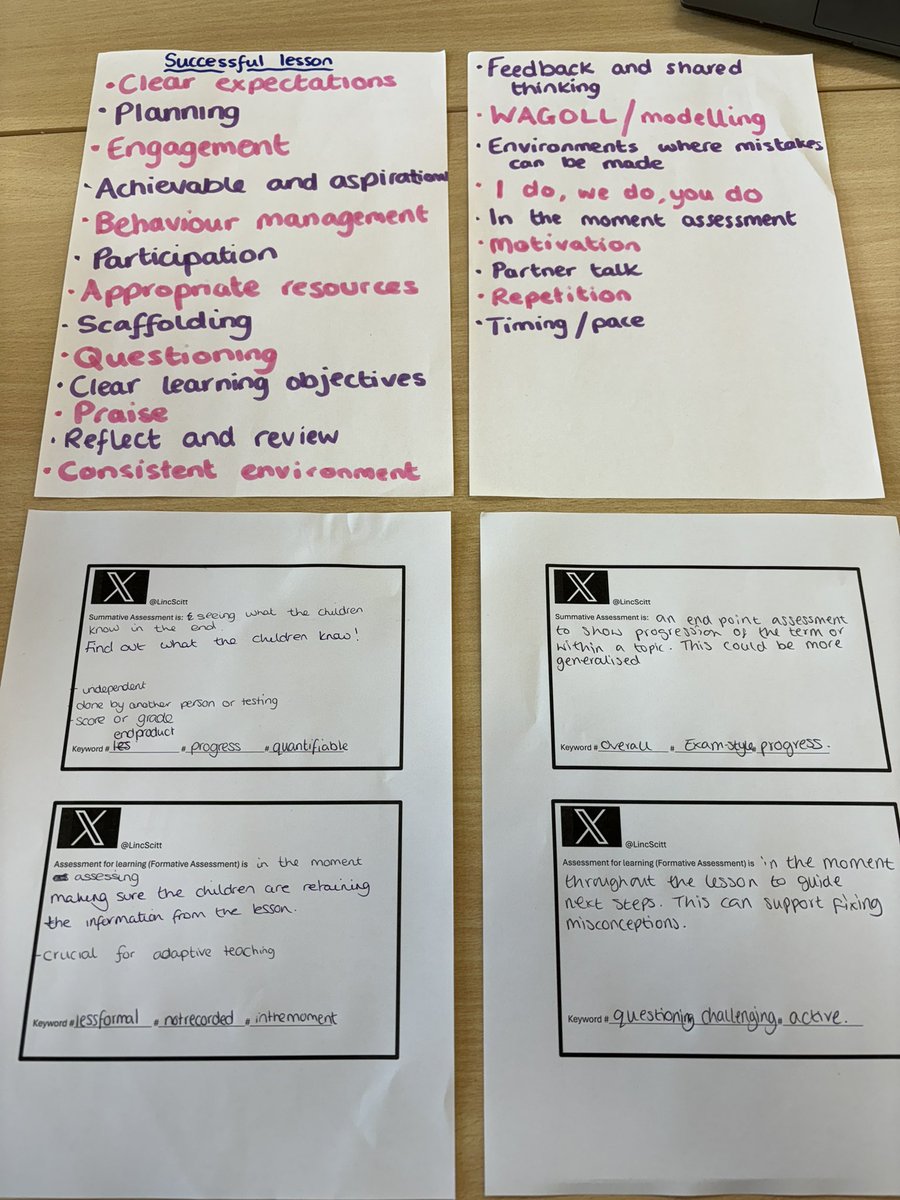 Successful lesson
• Clear expectations
• Planning
• Engagement
• Achievable and aspirational
• Behaviour management
• Participation
• Appropriate resources
• Scaffolding
• Questioning
• Clear learning objectives
• Praise
• Reflect and review
• Consistent environment
• Feedback and shared
thinking
• WAGOLL/modelling
• Environments where mistakes
can be made
• I do, we do, you do
• In the moment assessment
• Motivation
• Partner talk
• Repetition
• Timing/pace
X
@LincScitt
Summative Assessment is: seeing what the children
know in the end
Find out what the children know!
- independent
- done by another person or testing
- score or grade
endproduct
Keyword # # progress # quantifiable
X
@LincScitt
Assessment for learning (Formative Assessment) is in the moment
assessing
making sure the children are retaining
the information from the lesson.
- crucial for adaptive teaching
Keyword # lessformal # notrecorded # inthemoment
X
@LincScitt
Summative Assessment is: an end point assessment
to show progression of the term or
within a topic. This could be more
generalised
Keyword # overall # Exam-style progress.
X
@LincScitt
Assessment for learning (Formative Assessment) is in the moment
throughout the lesson to guide
next steps. This can support fixing
misconceptions.
Keyword # questioning challenging. active.